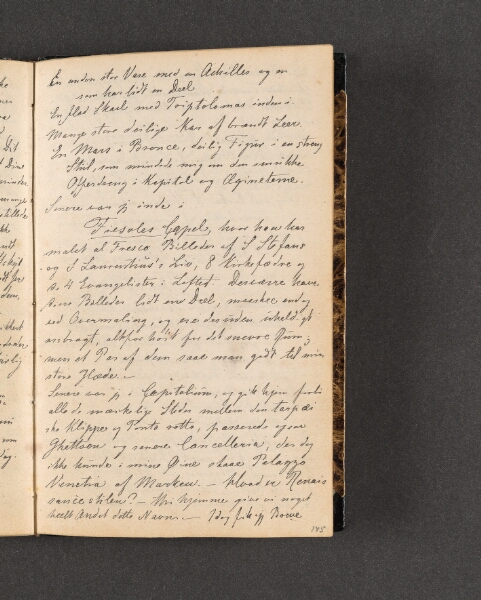 En anden stor Vase med en Achilles og en
som har lidt en Deel
En flad Skaal med Triptolemas inden i
Mange store deilige Kar af brændt Leer.
En Mars i Bronce, deilig Figur i en streng
Stiil, som mindede mig om den
Offerdreng i Kapitol og Ægineterne.
Senere var jeg inde i
Fiesoles Capel, hvor han har
malet al Fresco Billeder af S Stefans
og S Laurentius's Liv, 8 Kirkefædre og
4 Evangelister i Loftet. Desværre have
disse Billeder lidt en Deel, meeskee endog
ved Overmaling, og ere desuden uheldigt
anbragt, altfor høit for det snevre Rum;
men et Par af dem saae man godt til min
store Glæde. —
Senere var jeg i Capitolium, og gik hjem forbi
alle de mærkelige Steder mellem den tarpæi
ske Klippe og Ponte rotto, passerede ogsaa
Ghettoen og senere Cancelleria, der dog
ikke kunde i mine Øine skaae Palazzo
Venetia af Marken. — Hvad er Renais
sancestilen? — Vi hjemme give vi noget
heelt Andet dette Navn. — Idag fik jeg Breve
145